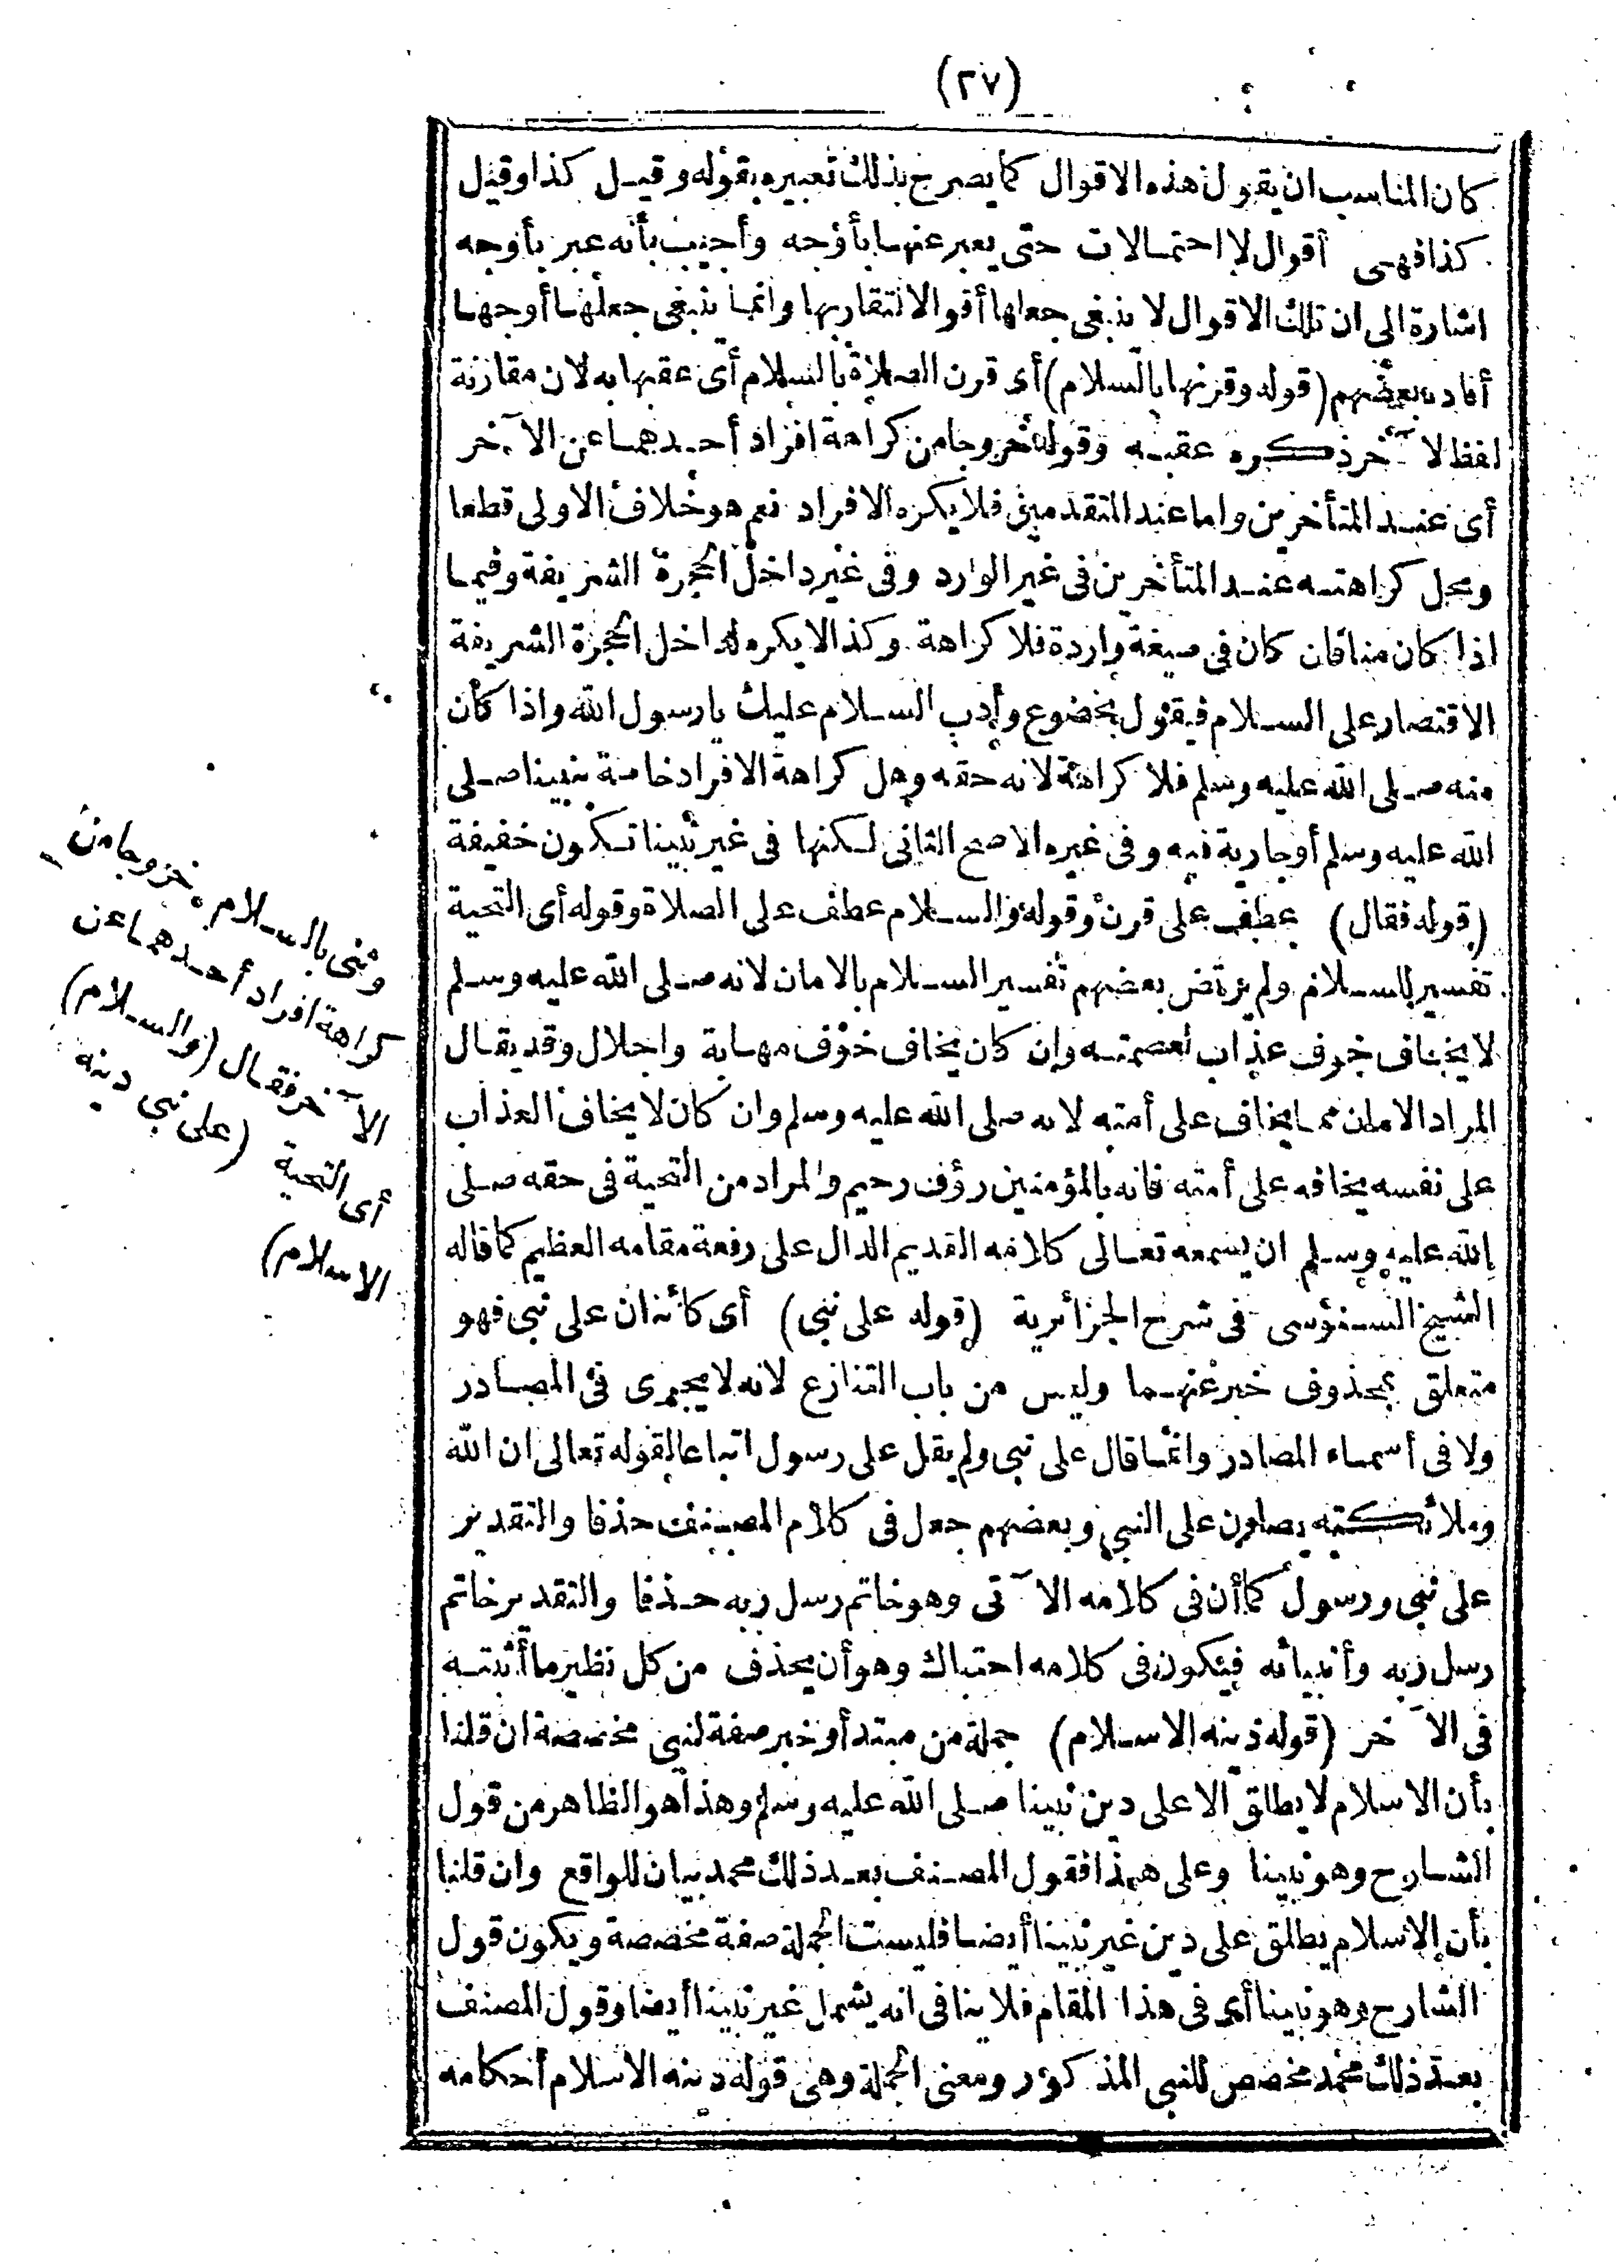 (٢٧)
كان المناسب ان يقول هذه الاقوال كما يصرح بذلك تعبيره بقوله وقيل كذا وقيل
كذا فهى أقوال لا احتمالات حتى يعبر عنها بأوجه وأجيب بأنه عبر بأوجه
اشارة الى ان تلك الاقوال لا ينبغى جعلها أقوالا لتقاربها وانما ينبغى جعلها أوجها
أفاده بعضهم (قوله وقرنها بالسلام) أى قرن الصلاة بالسلام أى عقبها به لان مقارنة
لفظ لآخر ذكره عقبه وقوله خروجا من كراهة افراد أحدهما عن الآخر
أى عند المتأخرين واما عند المتقدمين فلا يكره الافراد نعم هو خلاف الاولى قطعا
ومحل كراهته عند المتأخرين فى غير الوارد وفى غير داخل الحجرة الشريفة وفيما
اذا كان منا فان كان فى صيغة واردة فلا كراهة وكذا لا يكره لداخل الحجرة الشريفة
الاقتصار على السلام فيقول بخضوع وأدب السلام عليك يا رسول الله واذا كان
منه صلى الله عليه وسلم فلا كراهة لانه حقه وهل كراهة الافراد خاصة بنبينا صلى
الله عليه وسلم أو جارية فيه وفى غيره الاصح الثانى لكنها فى غير نبينا تكون خفيفة
(قوله فقال) عطف على قرن وقوله والسلام عطف على الصلاة وقوله أى التحية
تفسير للسلام ولم يرتض بعضهم تفسير السلام بالامان لانه صلى الله عليه وسلم
لا يخاف خوف عذاب لعصمته وان كان يخاف خوف مهابة واجلال وقد يقال
المراد الامان مما يخاف على أمته لانه صلى الله عليه وسلم وان كان لا يخاف العذاب
على نفسه يخافه على أمته فانه بالمؤمنين رؤف رحيم والمراد من التحية فى حقه صلى
الله عليه وسلم ان يسمعه تعالى كلامه القديم الدال على رفعة مقامه العظيم كما قاله
الشيخ السنوسى فى شرح الجزائرية (قوله على نبى) أى كائنان على نبى فهو
متعلق بمحذوف خبر عنهما وليس من باب التنازع لانه لا يجرى فى المصادر
ولا فى أسماء المصادر وانما قال على نبى ولم يقل على رسول اتباعا لقوله تعالى ان الله
وملائكته يصلون على النبى وبعضهم جعل فى كلام المصنف حذفا والتقدير
على نبى ورسول كما أن فى كلامه الآتى وهو خاتم رسل ربه حذفا والتقدير خاتم
رسل ربه وأنبيائه فيكون فى كلامه احتباك وهو أن يحذف من كل نظير ما أثبته
فى الآخر (قوله دينه الاسلام) جملة من مبتدأ وخبر صفة لنبى مخصصة ان قلنا
بأن الاسلام لا يطلق الا على دين نبينا صلى الله عليه وسلم وهذا هو الظاهر من قول
الشارح وهو نبينا وعلى هذا فقول المصنف بعد ذلك محمد بيان للواقع وان قلنا
بأن الاسلام يطلق على دين غير نبينا أيضا فليست الجملة صفة مخصصة ويكون قول
الشارح وهو نبينا أى فى هذا المقام فلا ينافى انه يشمل غير نبينا أيضا وقول المصنف
بعد ذلك محمد مخصص للنبى المذكور ومعنى الجملة وهى قوله دينه الاسلام أحكامه
وثنى بالسلام خروجا من
كراهة افراد أحدهما عن
الآخر فقال (والسلام)
أى التحية (على نبى دينه
الاسلام)